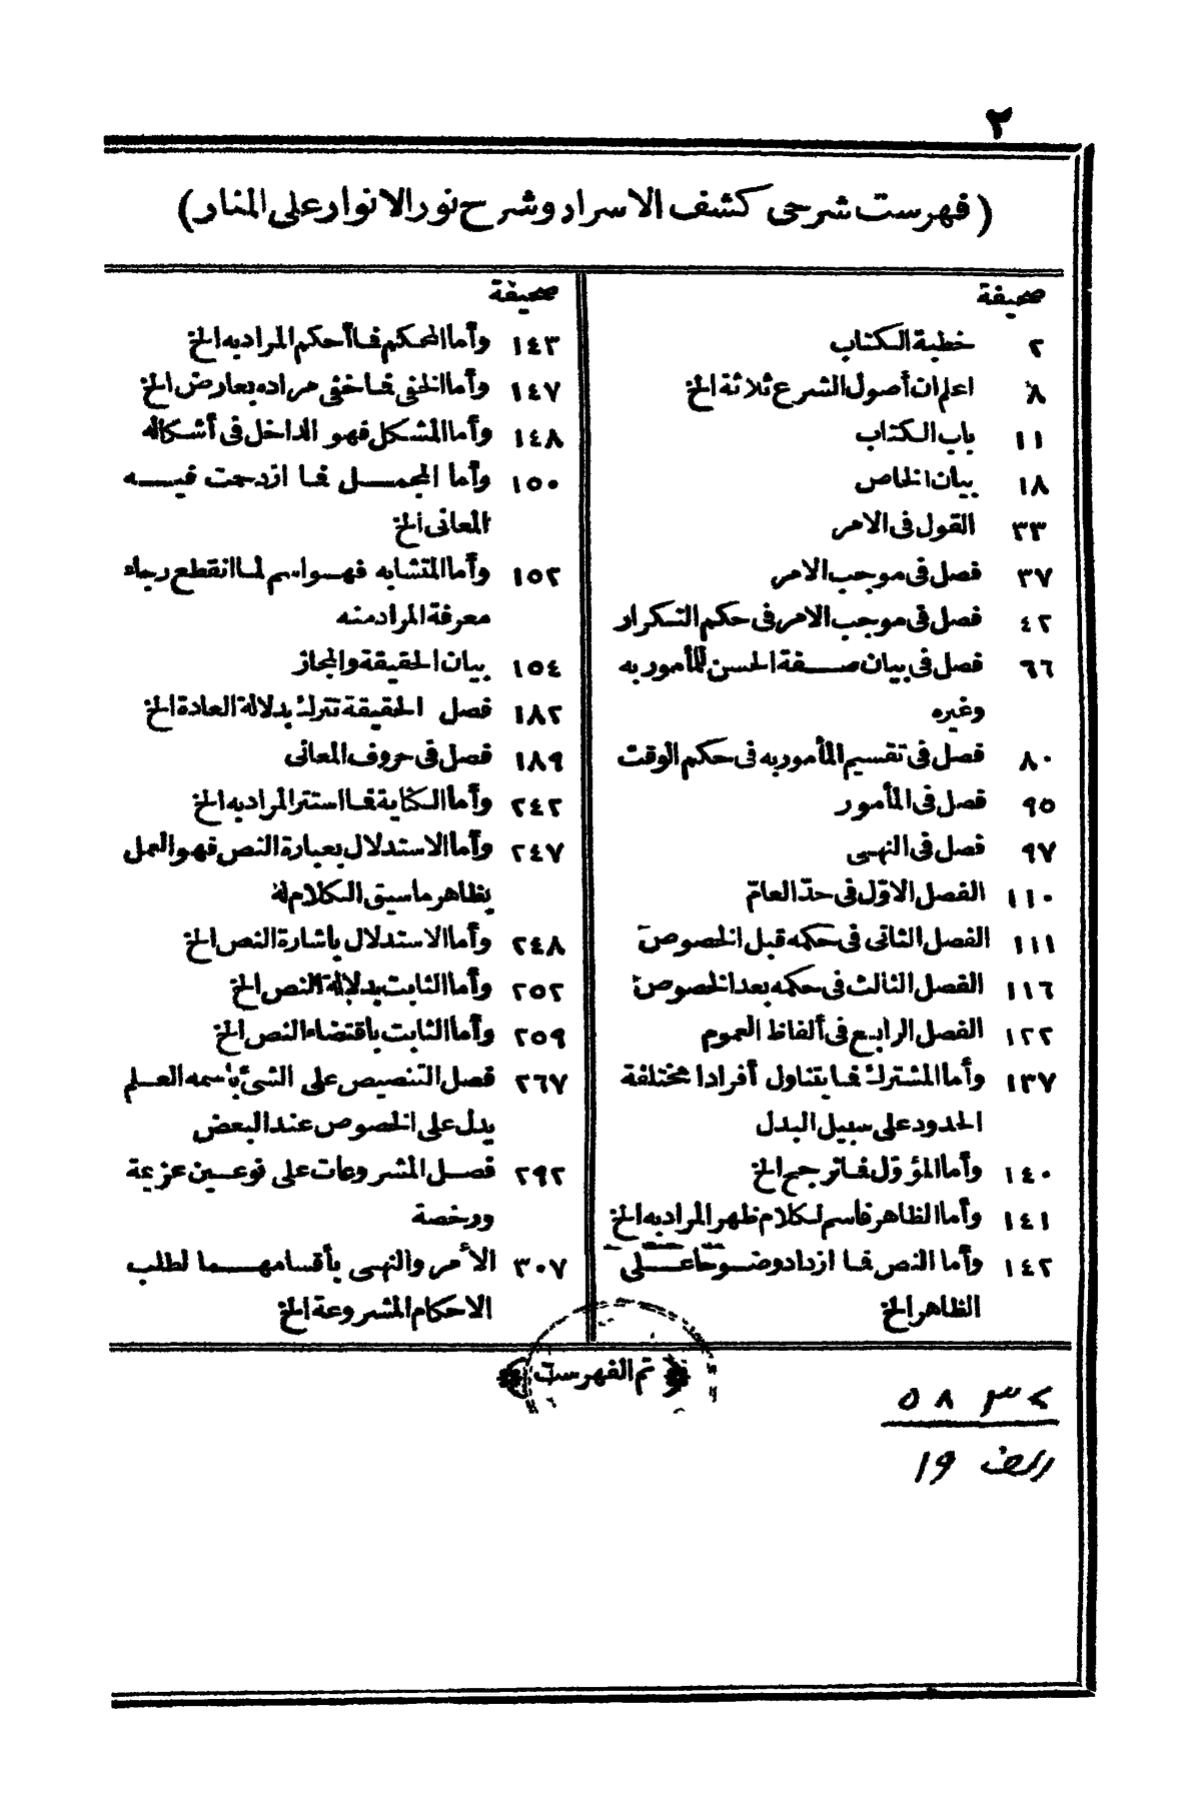 ٢
(فهرست شرحى كشف الاسرار وشرح نور الانوار على المنار)
صحيفة
٢ خطبة الكتاب
٨ اعلم ان أصول الشرع ثلاثة الخ
١١ باب الكتاب
١٨ بيان الخاص
٣٣ القول فى الامر
٣٧ فصل فى موجب الامر
٤٢ فصل فى موجب الامر فى حكم التكرار
٦٦ فصل فى بيان صفة الحسن للمأمور به
وغيره
٨٠ فصل فى تقسيم المأمور به فى حكم الوقت
٩٥ فصل فى المأمور
٩٧ فصل فى النهى
١١٠ الفصل الاوّل فى حدّ العامّ
١١١ الفصل الثانى فى حكمه قبل الخصوص
١١٦ الفصل الثالث فى حكمه بعد الخصوص
١٢٢ الفصل الرابع فى ألفاظ العموم
١٣٧ وأما المشترك فما يتناول أفرادا مختلفة
الحدود على سبيل البدل
١٤٠ وأما المؤوّل فما ترجح الخ
١٤١ وأما الظاهر فاسم لكلام ظهر المراد به الخ
١٤٢ وأما النص فما ازداد وضوحا على
الظاهر الخ
صحيفة
١٤٣ وأما المحكم فما أحكم المراد به الخ
١٤٧ وأما الخفى فما خفى مراده بعارض الخ
١٤٨ وأما المشكل فهو الداخل فى أشكاله
١٥٠ وأما المجمل فما ازدحمت فيه
المعانى الخ
١٥٢ وأما المتشابه فهو اسم لما انقطع رجاء
معرفة المراد منه
١٥٤ بيان الحقيقة والمجاز
١٨٢ فصل الحقيقة تترك بدلالة العادة الخ
١٨٩ فصل فى حروف المعانى
٢٤٢ وأما الكناية فما استتر المراد به الخ
٢٤٧ وأما الاستدلال بعبارة النص فهو العمل
بظاهر ما سيق الكلام له
٢٤٨ وأما الاستدلال باشارة النص الخ
٢٥٢ وأما الثابت بدلالة النص الخ
٢٥٩ وأما الثابت باقتضاء النص الخ
٢٦٧ فصل التنصيص على الشئ باسمه العلم
يدل على الخصوص عند البعض
٢٩٢ فصل المشروعات على نوعين عزيمة
ورخصة
٣٠٧ الأمر والنهى بأقسامهما لطلب
الاحكام المشروعة الخ
﴿تم الفهرست﴾
٨ ٥
١٩